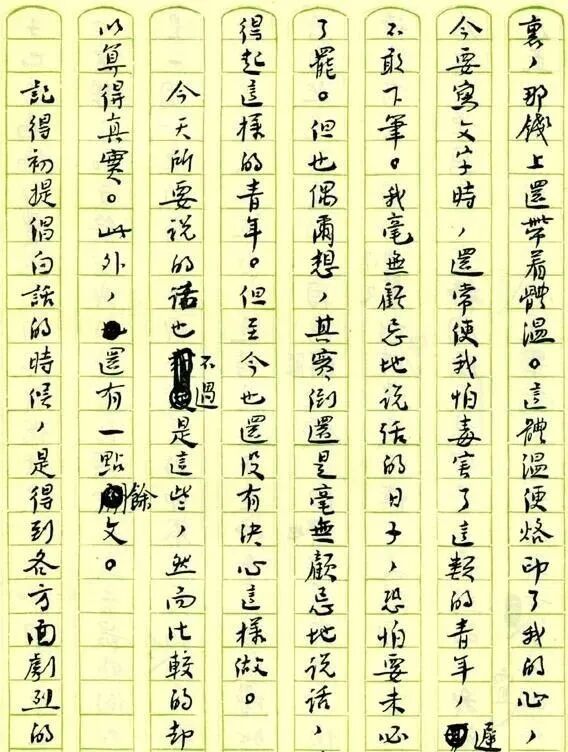 裏，那錢上還帶着體溫。這體溫便烙印了我的心，
今要寫文字時，還常使我怕毒害了這類的青年，遲
不敢下筆。我毫無顧忌地說話的日子，恐怕要未必
了罷。但也偶爾想，其實倒還是毫無顧忌地說話，
得起這樣的青年。但至今也還沒有決心這樣做。
今天所要說的話也不過是這些，然而比較的却
以算得真實。此外，還有一點餘文。
記得初提倡白話的時候，是得到各方面劇烈的